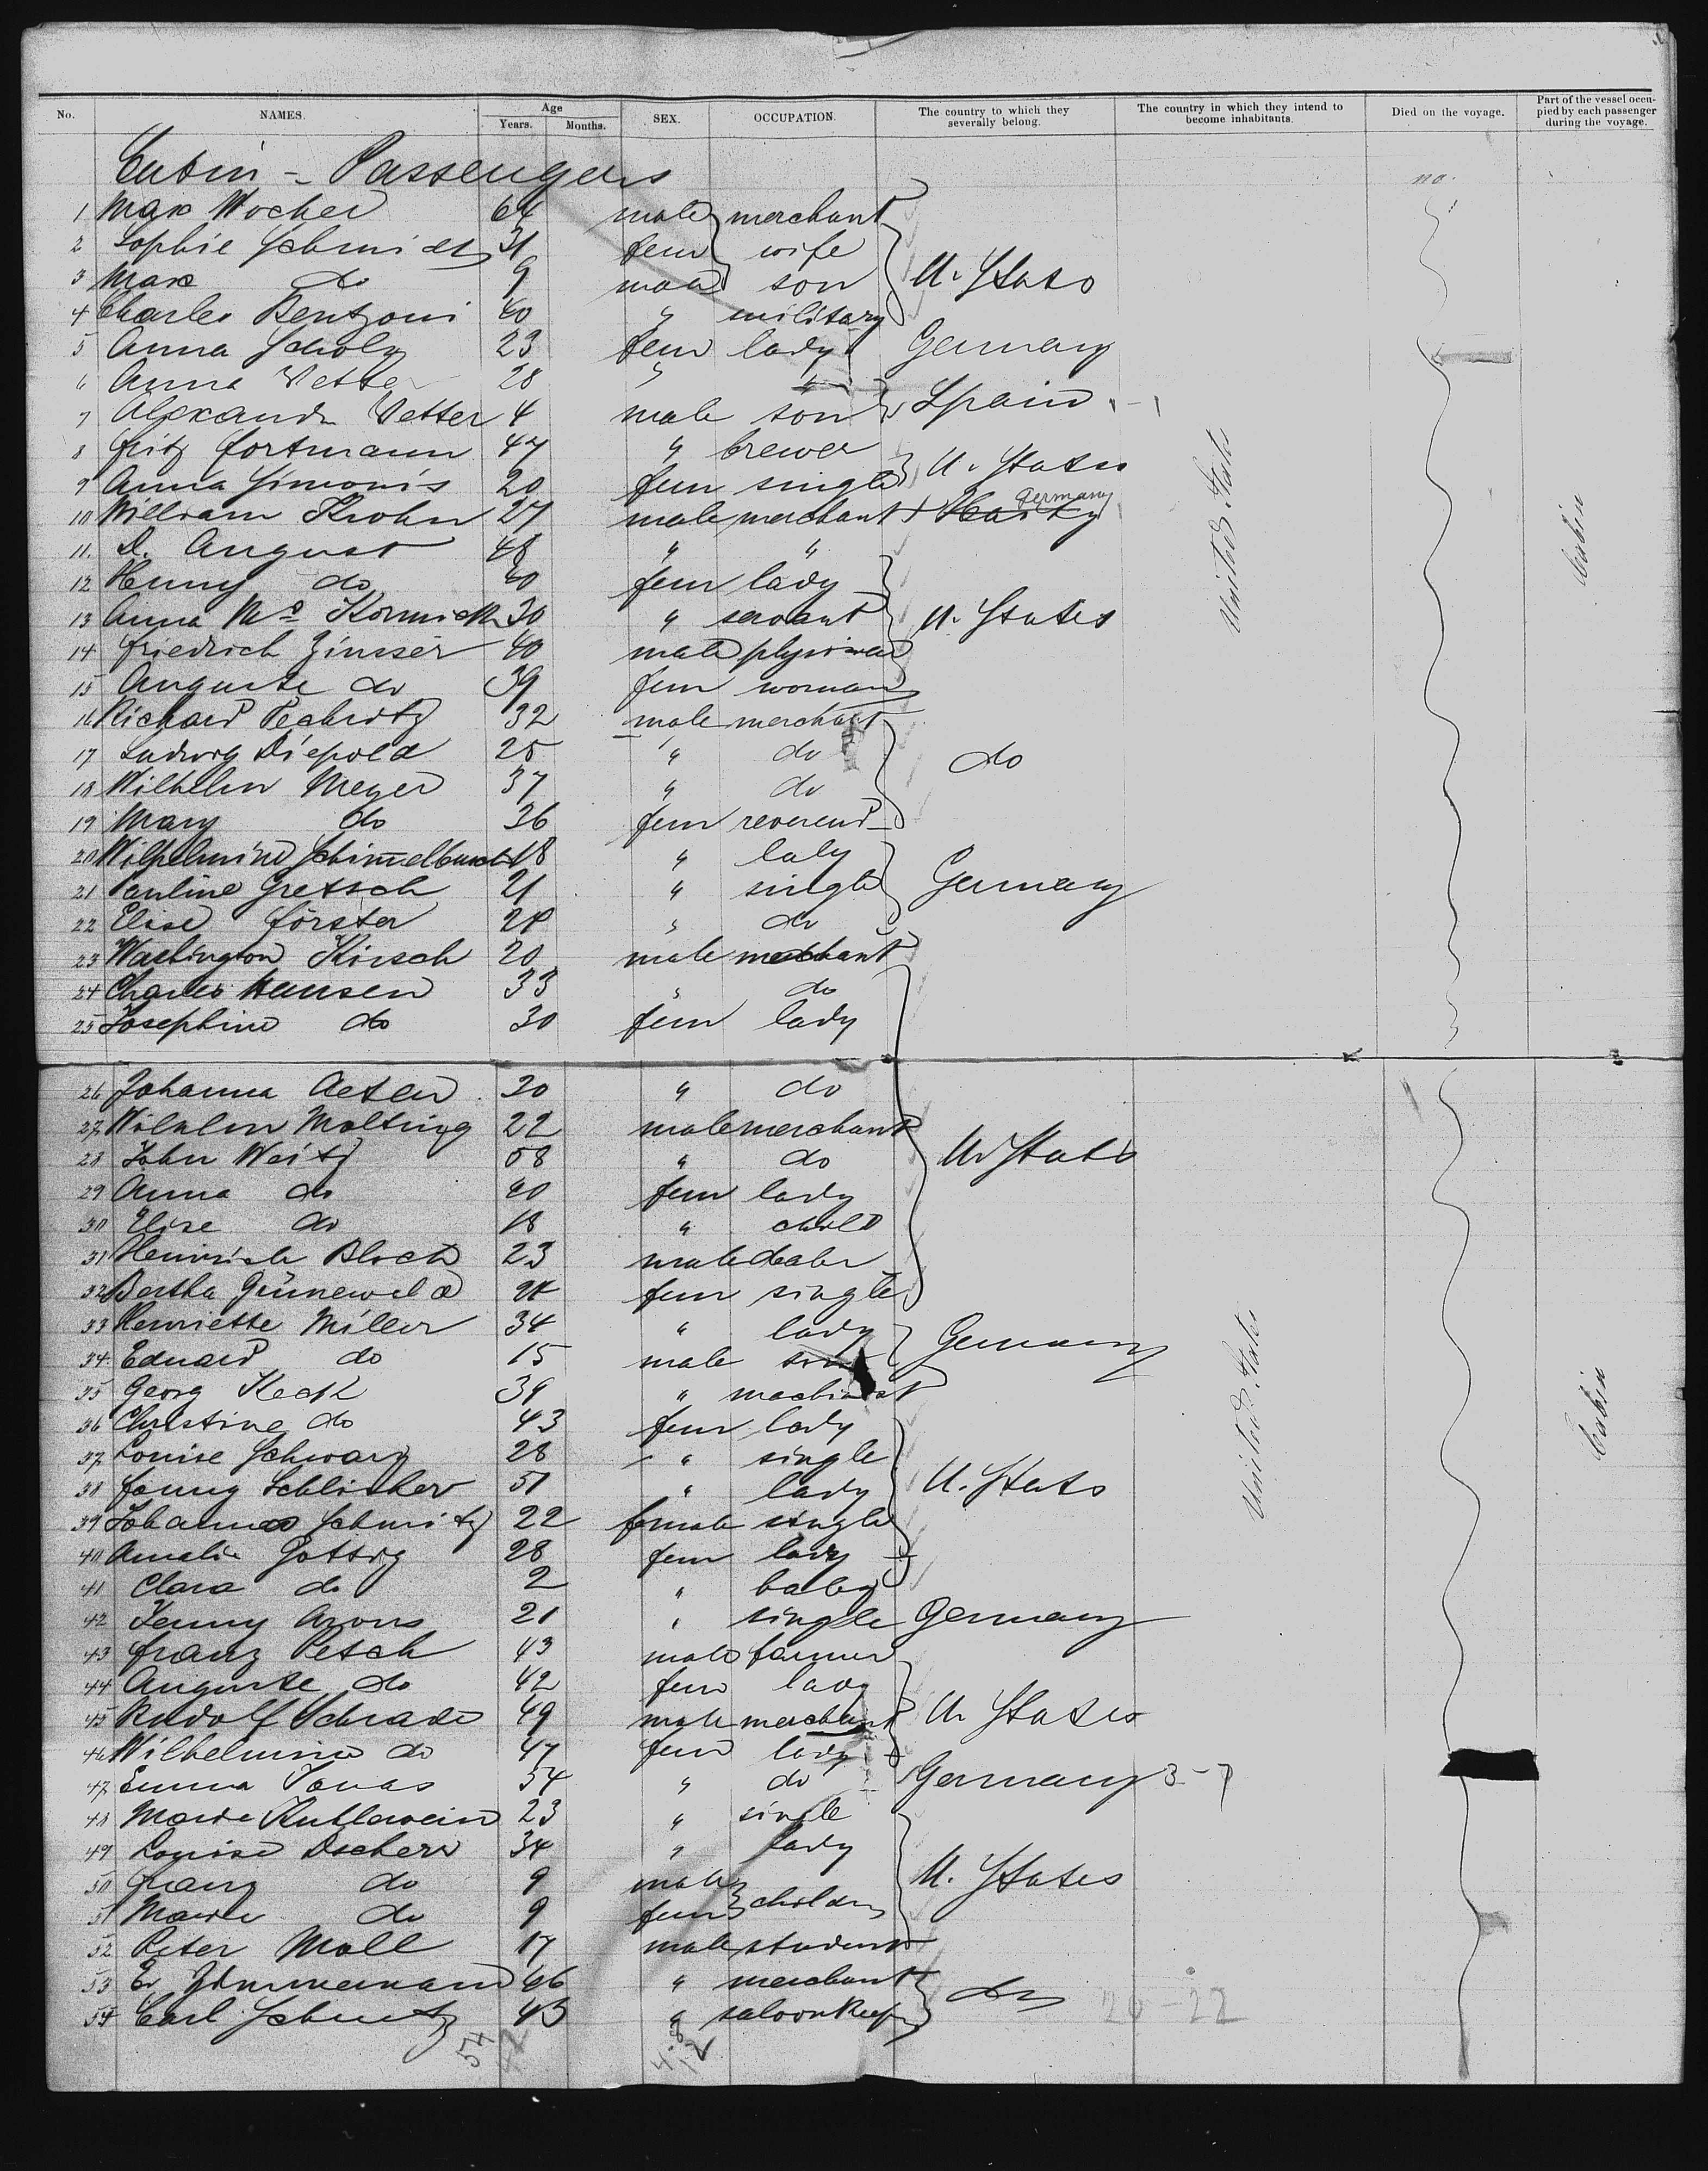 No. NAMES. Age Years. Months. SEX. OCCUPATION. The country to which they severally belong. The country in which they intend to become inhabitants. Died on the voyage. Part of the vessel occupied by each passenger during the voyage.
Cabin - Passengers no.
1 Max Wocher 64 male merchant
2 Sophie Schmidt 31 fem wife
3 Max do 9 male son U. States
4 Charles Bentzoni 40 " military
5 Anna Scholz 23 fem lady Germany
6 Anna Vetter 28 " "
7 Alexander Vetter 4 male son Spain
8 Fritz Fortmann 47 " brewer
9 Anna Simonis 20 fem single U. States
10 William Krohn 27 male merchant Germany
11. D. August 48 " "
12 Henny do 40 fem lady
13 Anna Mc Kormick 30 " servant U. States
14 Friedrich Zinsser 40 male physician
15 Auguste do 39 fem woman
16 Richard 32 male merchant
17 Ludwig Diepold 25 " do do
18 Wilhelm Meyer 37 " do
19 Mary do 36 fem reverend
20 Wilhelmine Schimmelbusch 18 " laly
21 Pauline Gretsch 21 " single Germany
22 Elise Förster 24 " do
23 Washington Kirsch 20 male merchant
24 Charles Hansen 33 " do
25 Josephine do 30 fem lady
United States
Cabin
26 Johanna 20 " do
27 Wilhelm Molting 22 male merchant
28 John Weitz 58 " do U. States
29 Anna do 40 fem lady
30 Elise do 18 " child
31 Heinrich Bloch 23 male dealer
32 Bertha Grünewald 24 fem single
33 Henriette Miller 34 " lady Germany
34 Eduard do 15 male son
35 Georg Keck 39 " machinist
36 Christine do 43 fem lady
37 Louise Schwarz 28 " single
38 Fanny Schlicher 51 " lady U. States
39 Johanna Schmitz 22 female single
40 Amalie 28 fem lady
41 Clara do 2 " baby
42 Jenny Arons 21 " single Germany
43 Franz Petsch 43 male farmer
44 Auguste do 42 fem lady
45 Rudolf Schrade 49 male merchant U. States
46 Wilhelmine do 47 fem lady
47 Emma Jonas 54 " do Germany 3-7
48 Marie 23 " single
49 Louise 34 " lady
50 Franz do 9 male U. States
51 Marie do 9 fem children
52 Peter Moll 17 male student
53 E. Zimmermann 46 " merchant do
54 Carl 43 " saloonkeep 20-22
United States
Cabin
54 42 12